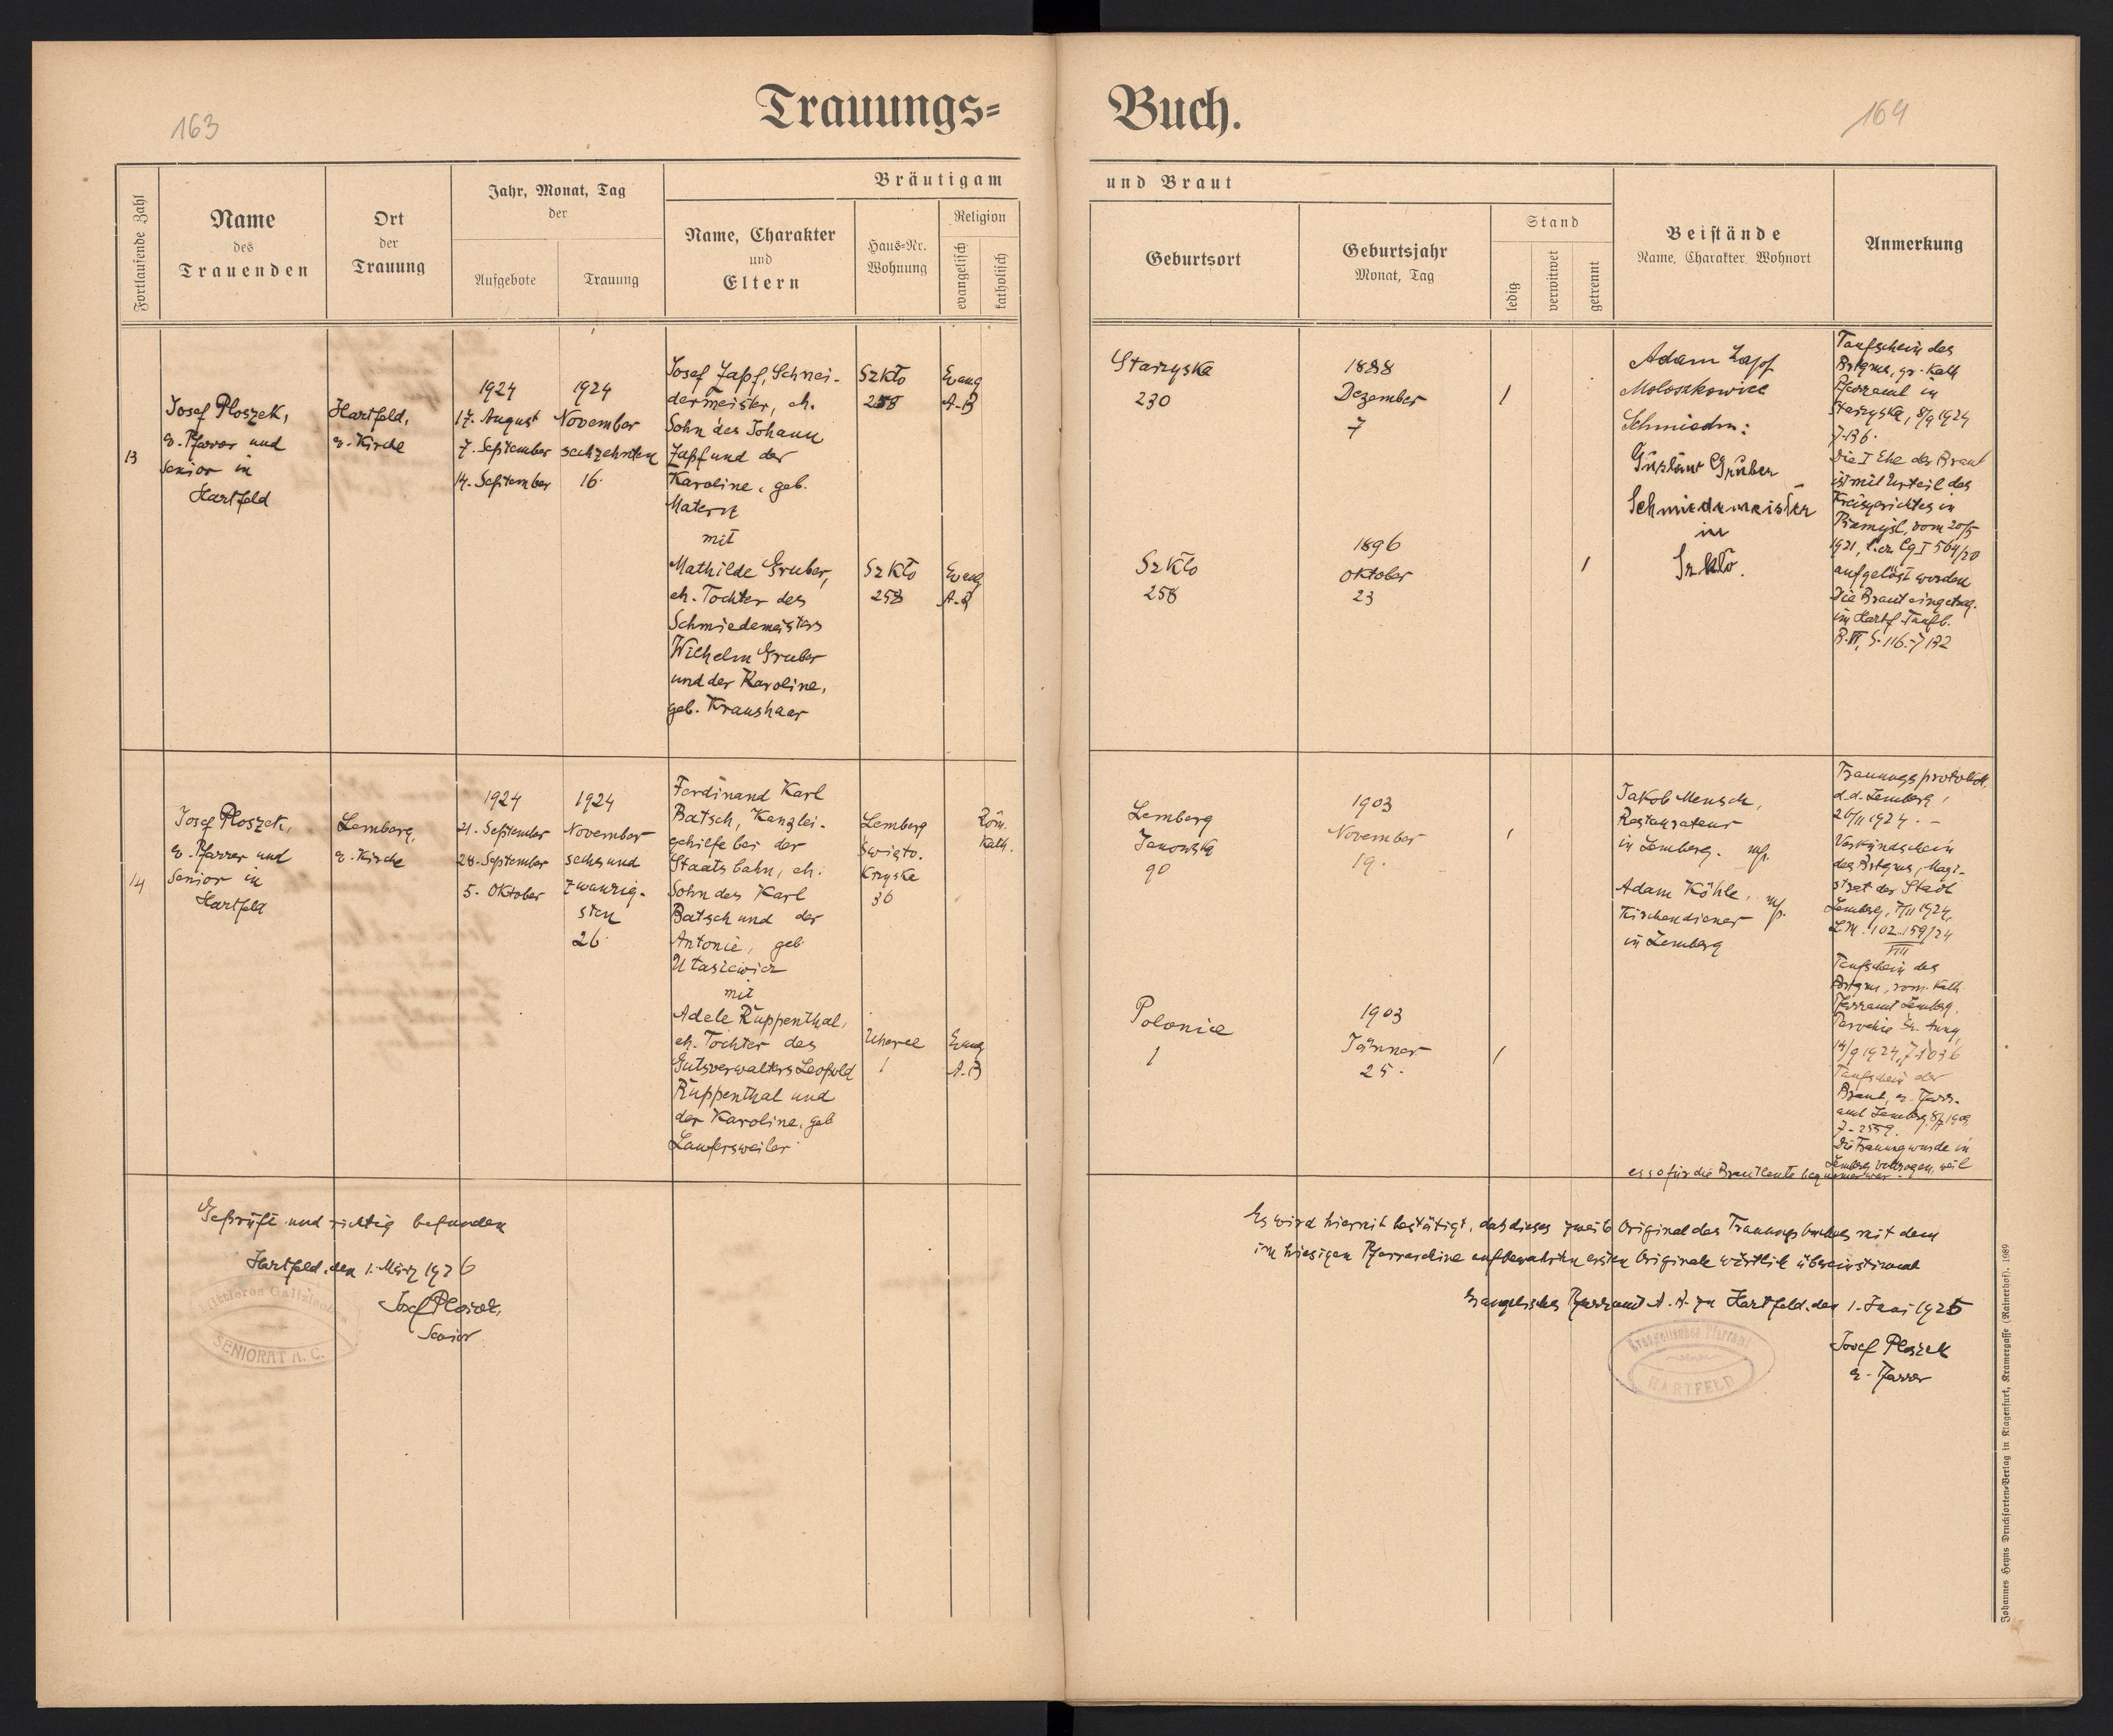 163
Trauungs=
Buch.
164
Fortlaufende Zahl
Name
des
Trauenden
Ort
der
Trauung
Jahr, Monat, Tag
der
Aufgebote
Trauung
Bräutigam
und Braut
Name, Charakter
und
Eltern
Haus=Nr.
Wohnung
Religion
evangelisch
katholisch
Geburtsort
Geburtsjahr
Monat, Tag
Stand
ledig
verwitwet
getrennt
Beistände
Name, Charakter Wohnort
Anmerkung
13
Josef Ploszek,
ev. Pfarrer und
Senior in
Hartfeld
Hartfeld,
ev. Kirche
1924
17. August
7. September
14. September
1924
November
sechzehnten
16.
Josef Zapf, Schnei-
dermeister, eh.
Sohn des Johann
Zapf und der
Karoline, geb.
Matern
mit
Mathilde Gruber,
eh. Tochter des
Schmiedemeisters
Wilhelm Gruber
und der Karoline,
geb. Kraushaar
Szkło
258
Evang
A.B
Szkło
258
Evang
A.B
Starzyska
230
1888
Dezember
7
/
Szkło
258
1896
Oktober
23
/
Adam Zapf
Moloszkowice
Schmiedm:
Gustav Gruber
Schmiedemeister
in
Szkło.
Taufschein des
Brtgms, gr. Kath
Pfarramt in
Starzyska, 8/9 1924
Z 136.
Die I Ehe der Braut
ist mit Urteil des
Kreisgerichtes in
Przemyśl, vom 20/5
1921, Cg I 564/20
aufgelöst worden
Die Braut eingetrag.
im Hartf. Taufb.
B. VI, S. 116. Z 132
14
Josef Ploszek,
ev. Pfarrer und
Senior in
Hartfeld
Lemberg,
ev. Kirche
1924
21. September
28. September
5. Oktober
1924
November
sechsund
zwanzig-
sten
26.
Ferdinand Karl
Batsch, Kanzlei-
gehilfe bei der
Staatsbahn, eh.
Sohn des Karl
Batsch und der
Antonie, geb
Utasiewicz
mit
Adele Ruppenthal,
eh. Tochter des
Gutsverwalters Leopold
Ruppenthal und
der Karoline, geb
Laufersweiler
Lemberg
Święto-
Kryska
36
Röm.
Kath.
Uherce
1
Evang
A.B
Lemberg
Janowska
90
1903
November
19.
/
Polonice
1
1903
Jänner
25.
/
Jakob Mensch,
Restaurateur
in Lemberg. mp.
Adam Köhle, mp.
Kirchendiener
in Lemberg
Trauungsprotokoll,
d.d. Lemberg,
26/11 1924. -
Verkündschein
des Brtgms, Magi-
strat der Stadt
Lemberg, 7/11 1924,
L.M. 102.159/24
VIII
Taufschein des
Brtgms, röm. Kath
Pfarramt Lemberg,
Parochie St. Anna,
14/9 1924, Z 1036
Taufschein der
Braut, ev. Pfarr-
amt Lemberg,
Z. 2559.
Die Trauung wurde in
Lemberg vollzogen, weil
es so für die Brautleute bequemer war.
Geprüft und richtig befunden
Hartfeld, den 1. März 1926
Josef Ploszek,
Senior
Mittleres Galizisches
SENIORAT A. C.
Es wird hiermit bestätigt, daß dieses zweite Original des Trauungsbuches mit dem
im hiesigen Pfarrarchive aufbewahrten ersten Originale wörtlich übereinstimmt
Evangelisches Pfarramt A. B. zu Hartfeld, den 1. 1925
Josef Ploszek
ev. Pfarrer
Evangelisches Pfarramt
HARTFELD
Johannes Heyns Drucksorten=Verlag in Klagenfurt, Kramergasse (Rainerhof). 1989